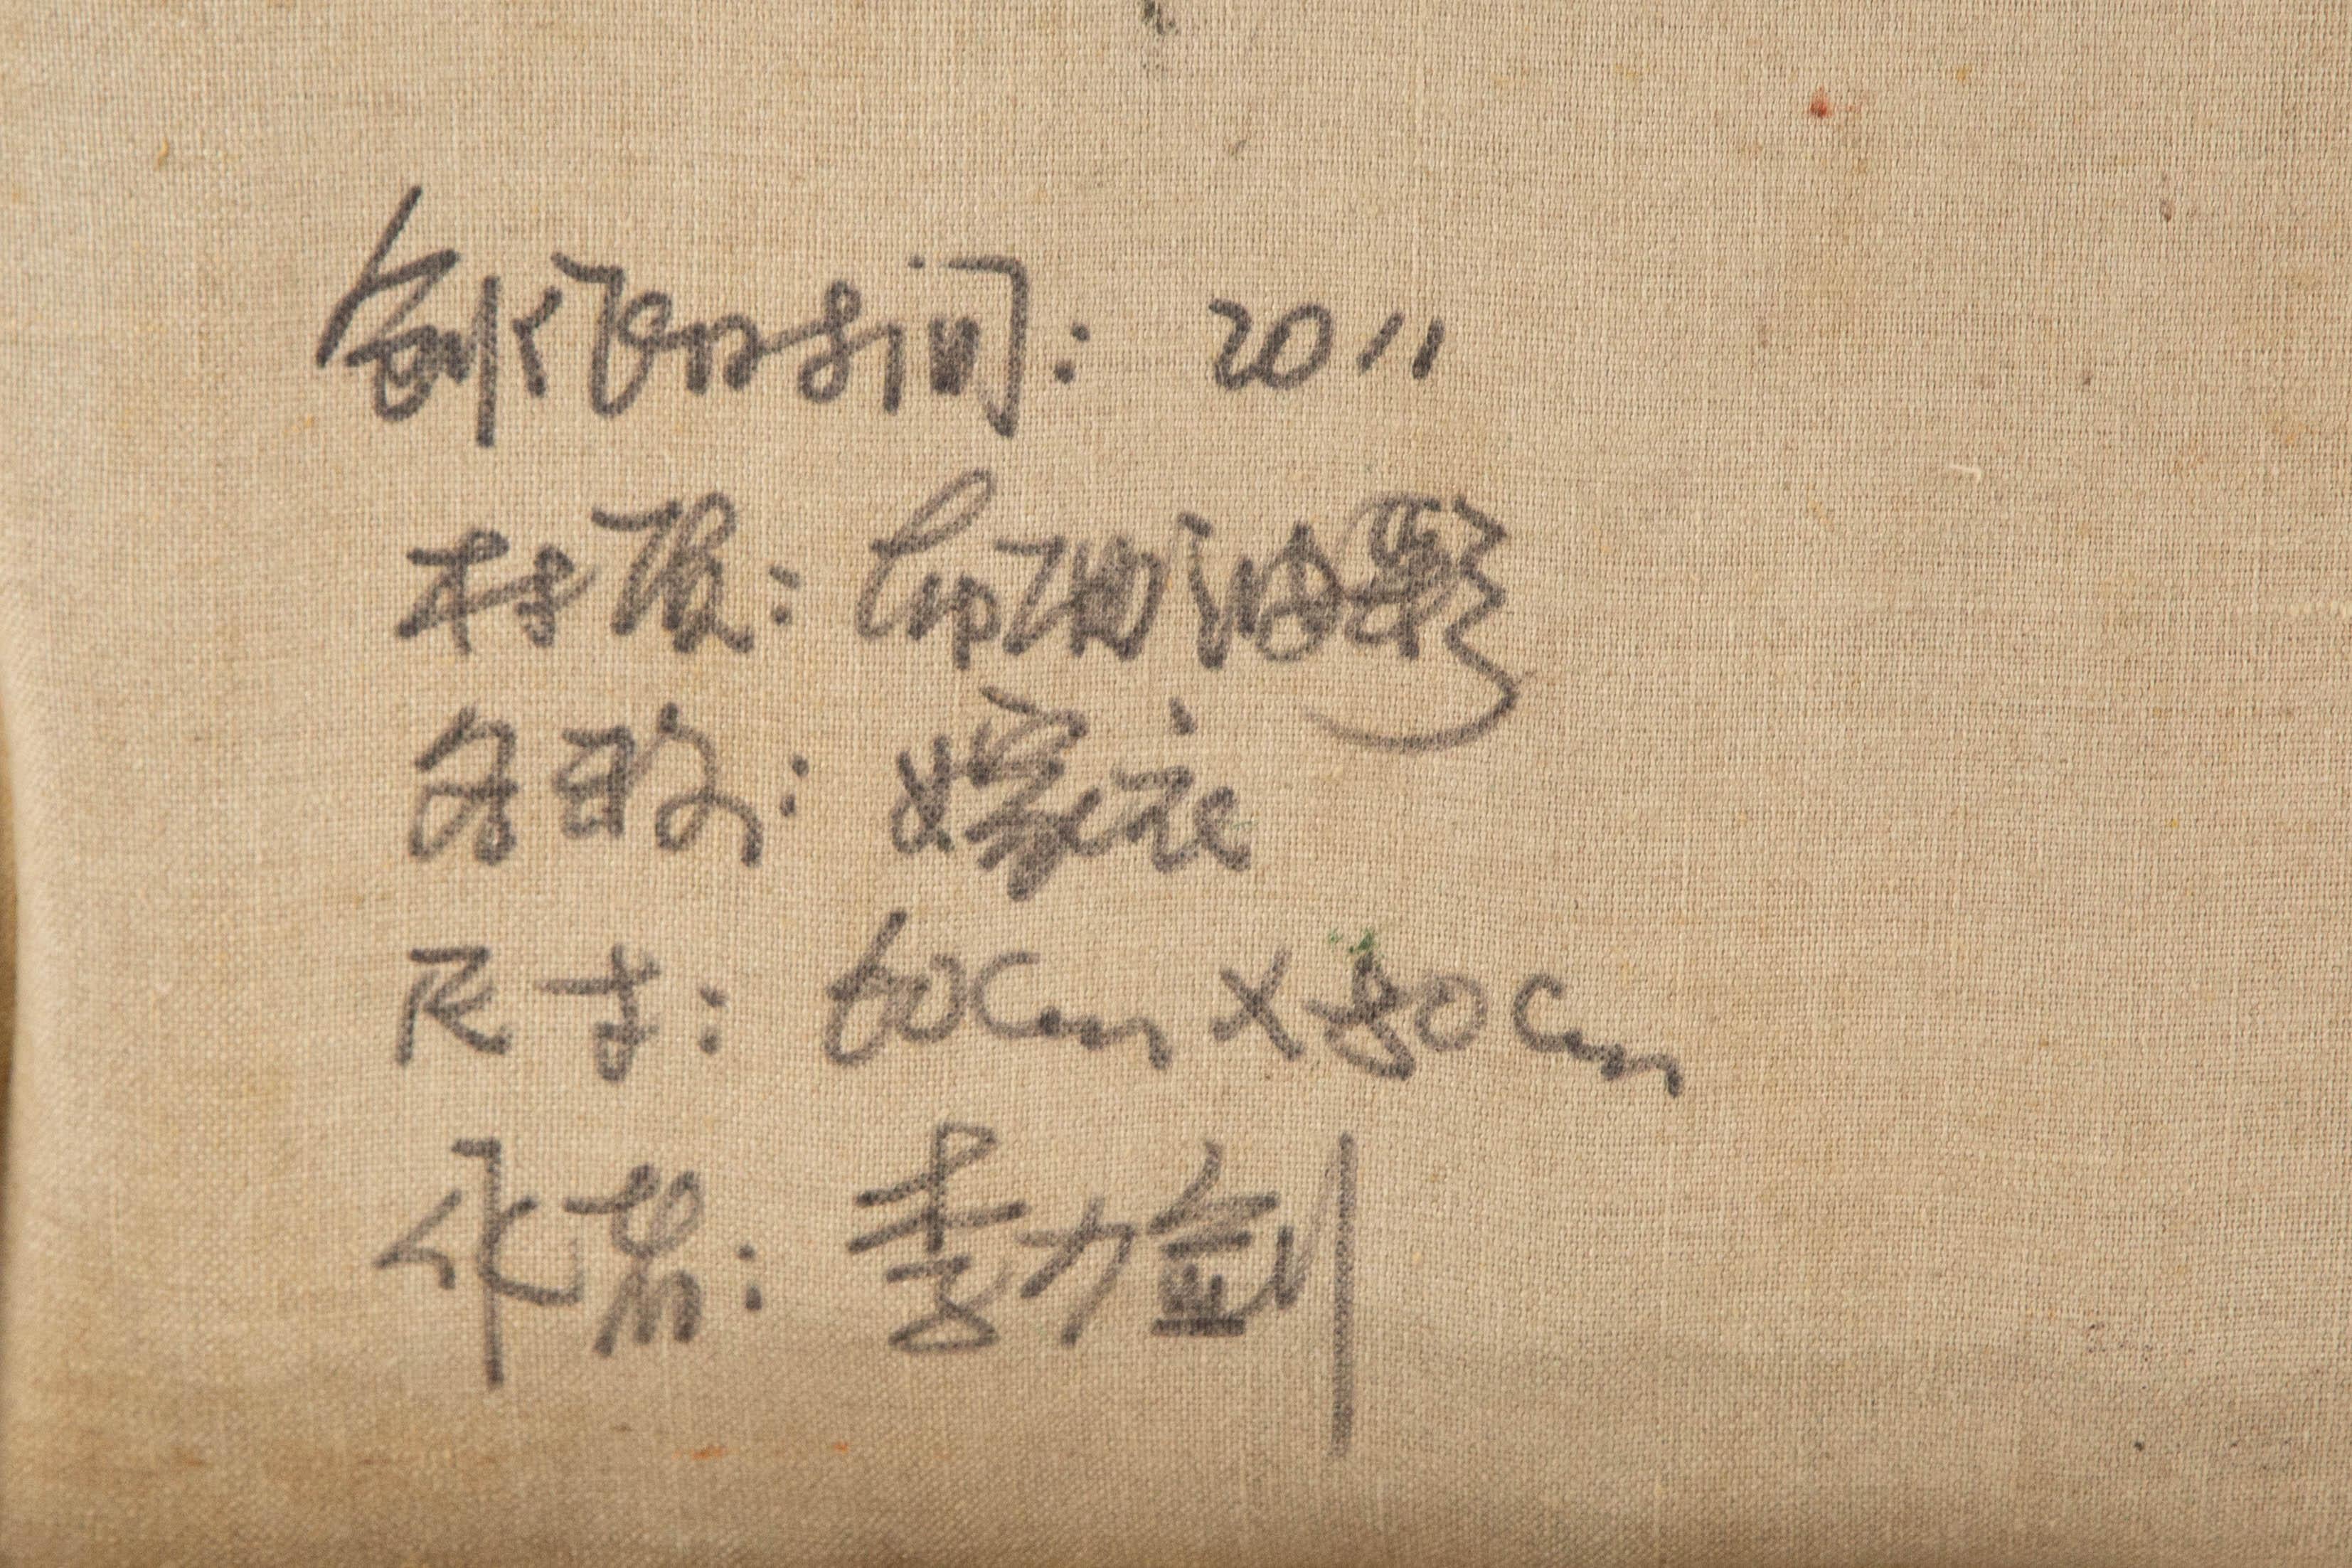 创作时间：2011
材质：布面油彩
嫁衣
尺寸：60cm x 80cm
作者：李力剑